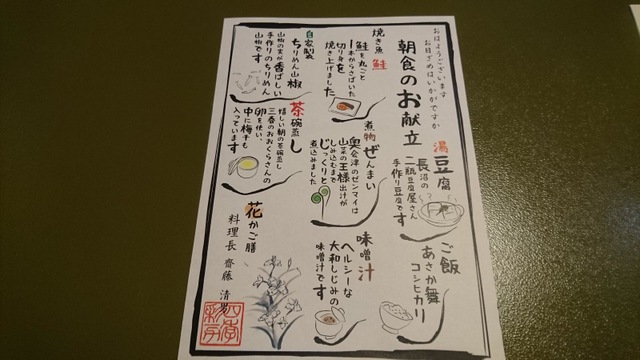 おはようございます
お目ざめはいかがですか
朝食のお献立
湯豆腐
長沼の
二瓶豆腐屋さん
手作り豆腐です
ご飯
あさか舞
コシヒカリ
焼き魚 鮭
鮭を丸ごと
1本からさばいた
切り身を
焼き上げました
煮物 ぜんまい
奥会津のゼンマイは
山菜の王様 出汁が
しみ込むまで
じっくりと
煮込みました
味噌汁
ヘルシーな
大和しじみの
味噌汁です
自家製
ちりめん山椒
山椒の実が香ばしい
手作りのちりめん
山椒です
茶碗蒸し
嬉しい朝の茶碗蒸し
三春のおおくらさんの
卵を使い、
中に梅干も
入っています
花かご膳
料理長 齋藤 清